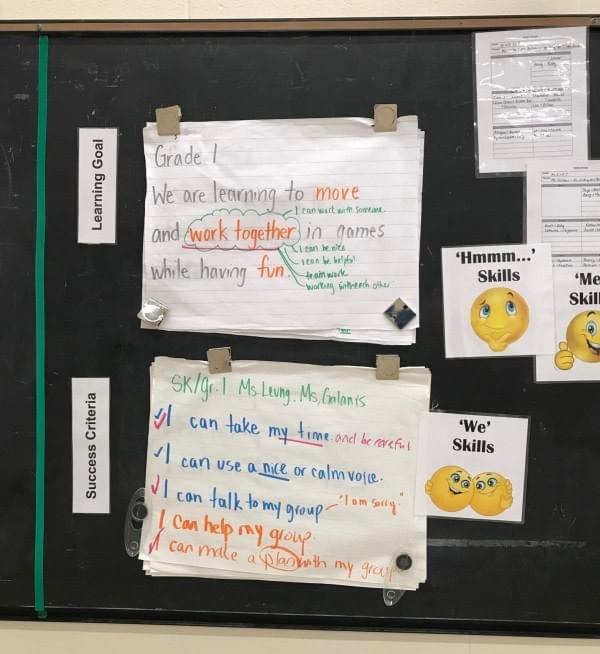 Learning Goal
Grade 1
We are learning to move
I can work with someone.
and work together in games
I can be nice
I can be helpful
while having fun.
teamwork
working with each other
Success Criteria
SK/gr.1 Ms. Leung. Ms. Galanis
I can take my time and be careful
I can use a nice or calm voice.
I can talk to my group - "I am sorry."
I can help my group.
I can make a plan with my group
'Hmmm...'
Skills
'Me
Skill
'We'
Skills